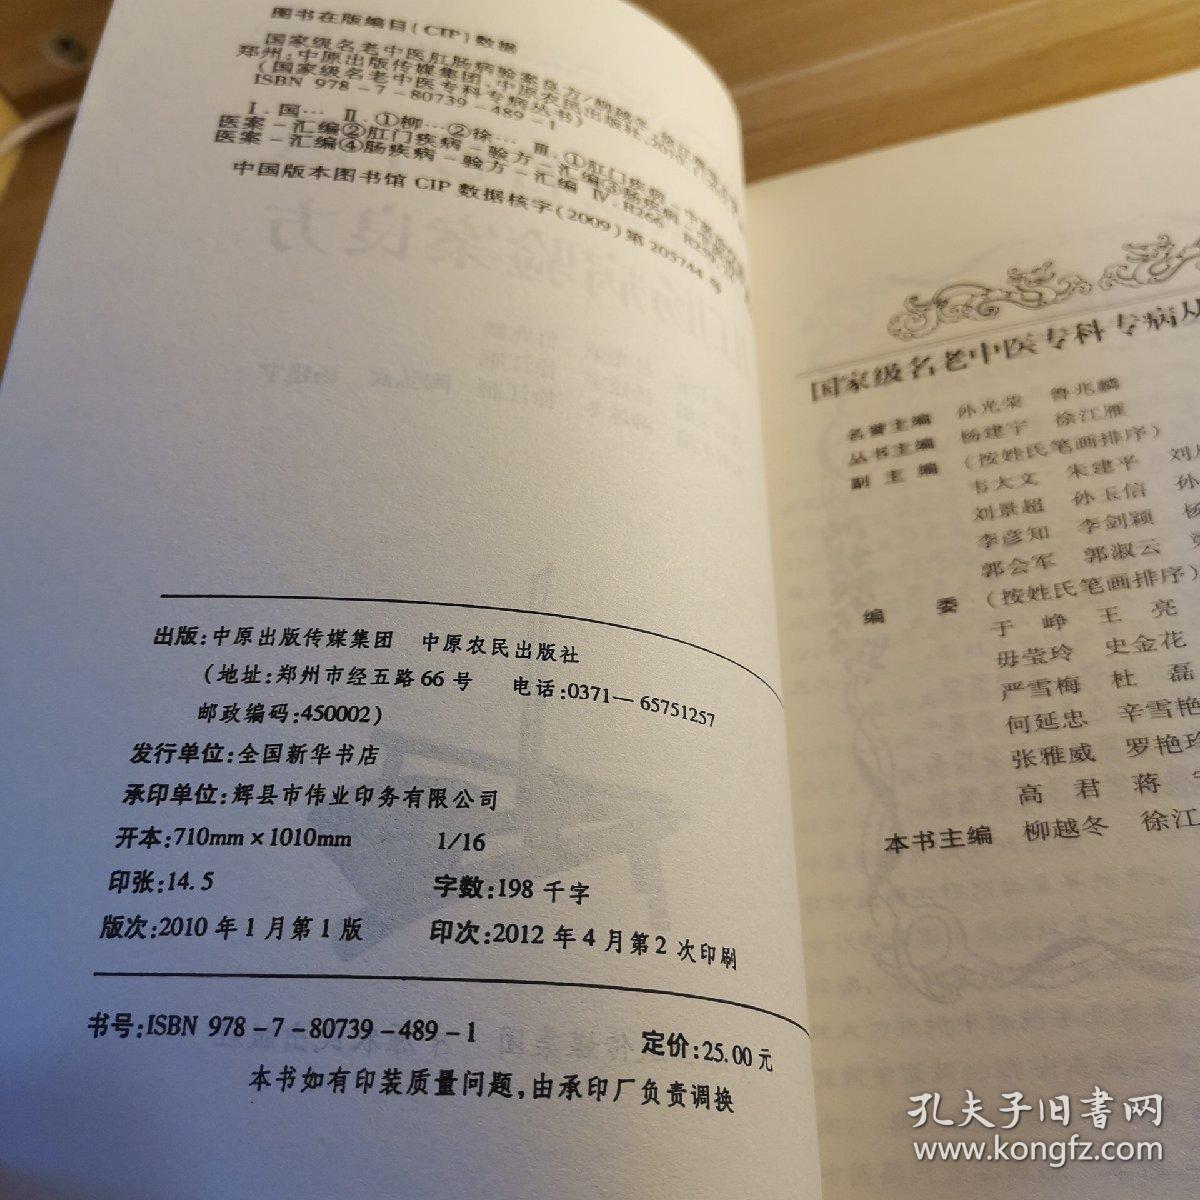 图书在版编目(CIP)数据
国家级名老中医肛肠病验案良方/柳越冬,徐江雁
郑州:中原出版传媒集团,中原农民出版社,2010.1
(国家级名老中医专科专病丛书)
ISBN 978-7-80739-489-1
Ⅰ.国… Ⅱ.①柳…②徐… Ⅲ.①肛门疾病-中医
医案-汇编②肛门疾病-验方-汇编③肠疾病
医案-汇编④肠疾病-验方-汇编 Ⅳ.R266
中国版本图书馆CIP数据核字(2009)第205744号
出版:中原出版传媒集团 中原农民出版社
(地址:郑州市经五路66号 电话:0371—65751257
邮政编码:450002)
发行单位:全国新华书店
承印单位:辉县市伟业印务有限公司
开本:710mm×1010mm 1/16
印张:14.5 字数:198千字
版次:2010年1月第1版 印次:2012年4月第2次印刷
书号:ISBN 978-7-80739-489-1 定价:25.00元
本书如有印装质量问题,由承印厂负责调换
国家级名老中医专科专病丛
名誉主编 孙光荣 鲁兆麟
丛书主编 杨建宇 徐江雁
副主编 (按姓氏笔画排序)
韦大文 朱建平 刘
刘景超 孙玉信 孙
李彦知 李剑颖 杨
郭会军 郭淑云
编委 (按姓氏笔画排序)
于峥 王亮
毋莹玲 史金花
严雪梅 杜磊
何延忠 辛雪艳
张雅威 罗艳玲
高君 蒋
本书主编 柳越冬 徐江
孔夫子旧书网
www.kongfz.com